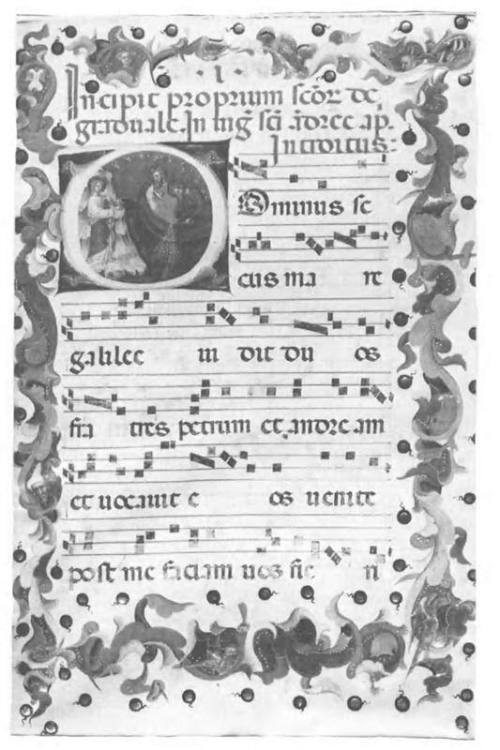 · I ·
Incipit proprium scoꝝ de
graduale. In uig̃ sci ādree ap.
Introitus:
Ominus se
cus ma re
galilee ui dit du os
fra tres petrum et andre am
et uocauit e os uenite
post me faciam uos fie ri